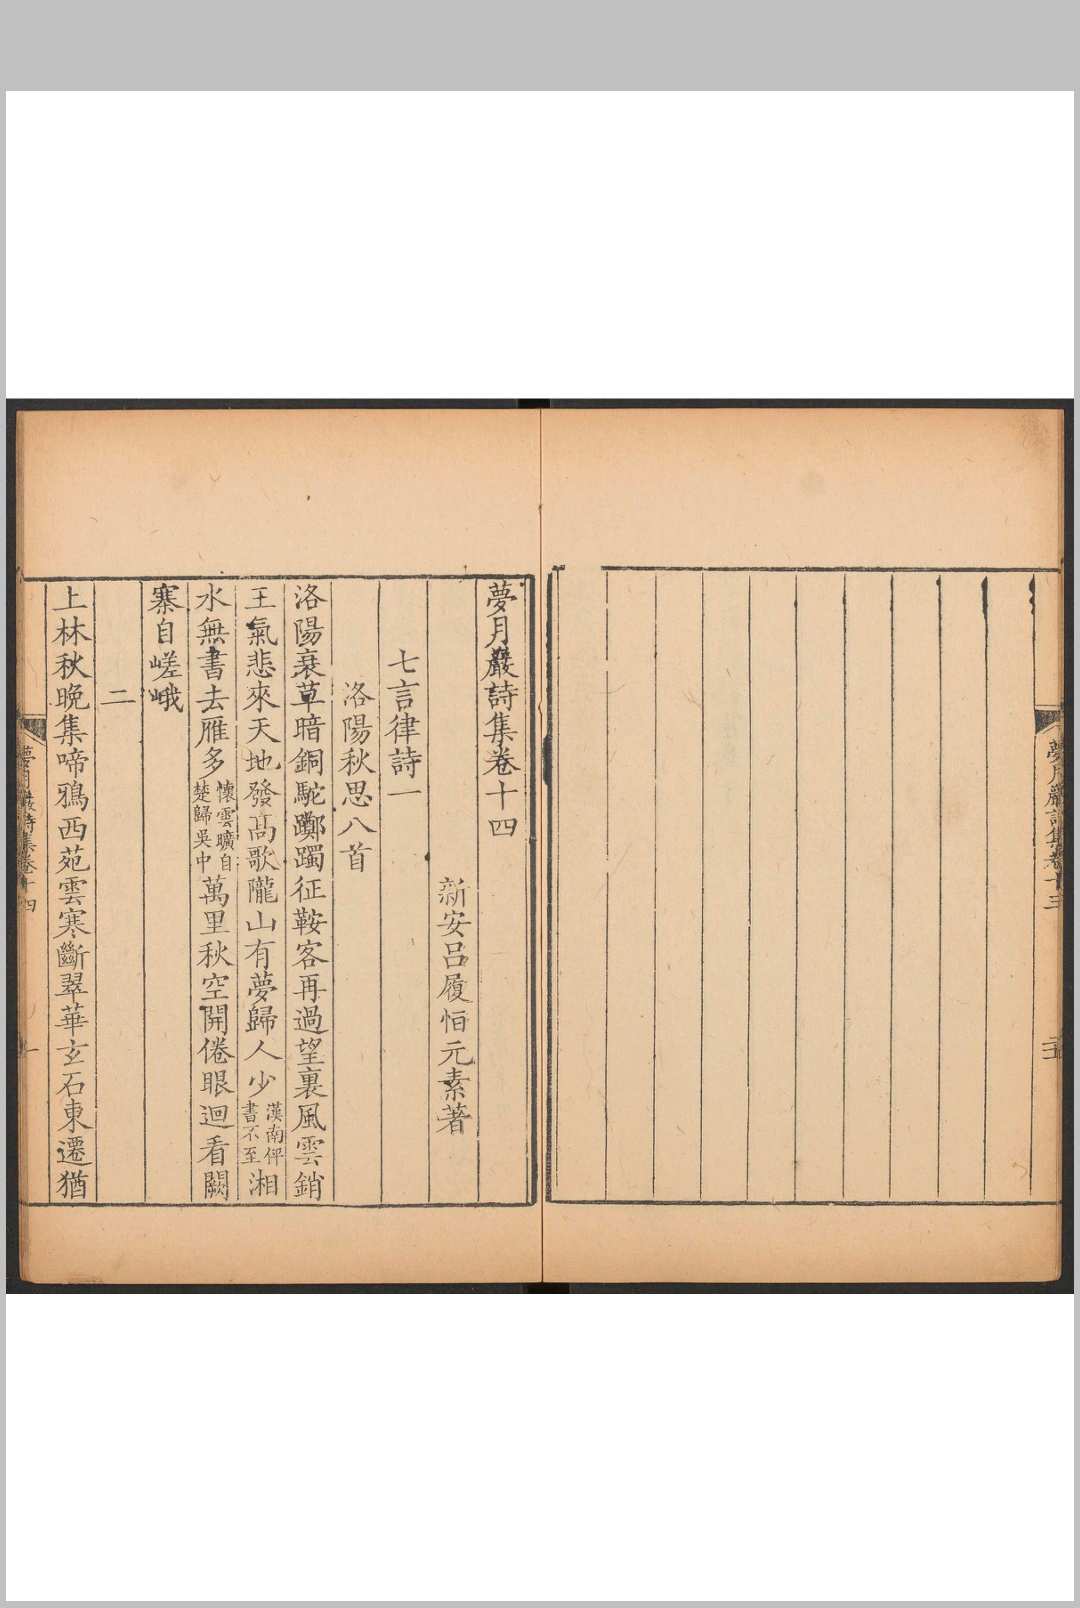 夢月巖詩集卷十三
夢月巖詩集卷十四
新安呂履恒元素著
七言律詩一
洛陽秋思八首
洛陽衰草暗銅駝躑躅征鞍客再過望裏風雲銷
王氣悲來天地發高歌隴山有夢歸人少漢南伻書不至湘
水無書去雁多懷雲曠自楚歸吳中萬里秋空開倦眼迴看闕
寨自嵯峨
二
上林秋晚集啼鴉西苑雲寒斷翠華玄石東遷猶
夢月巖詩集卷十四
一